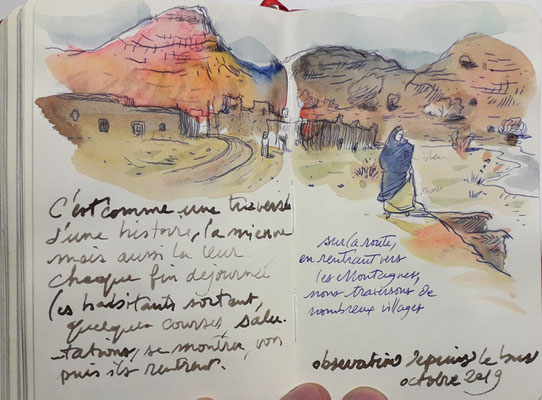 C'est comme une traversé
d'une histoire, la mienne
mais aussi la leur.
chaque fin de journée
les habitants sortent,
quelques courses, salu-
tations, se montrer, voir
puis ils rentrent.
sur la route,
en rentrant vers
les Montagnes,
nous traversons de
nombreux villages
observations depuis le bus
octobre 2019